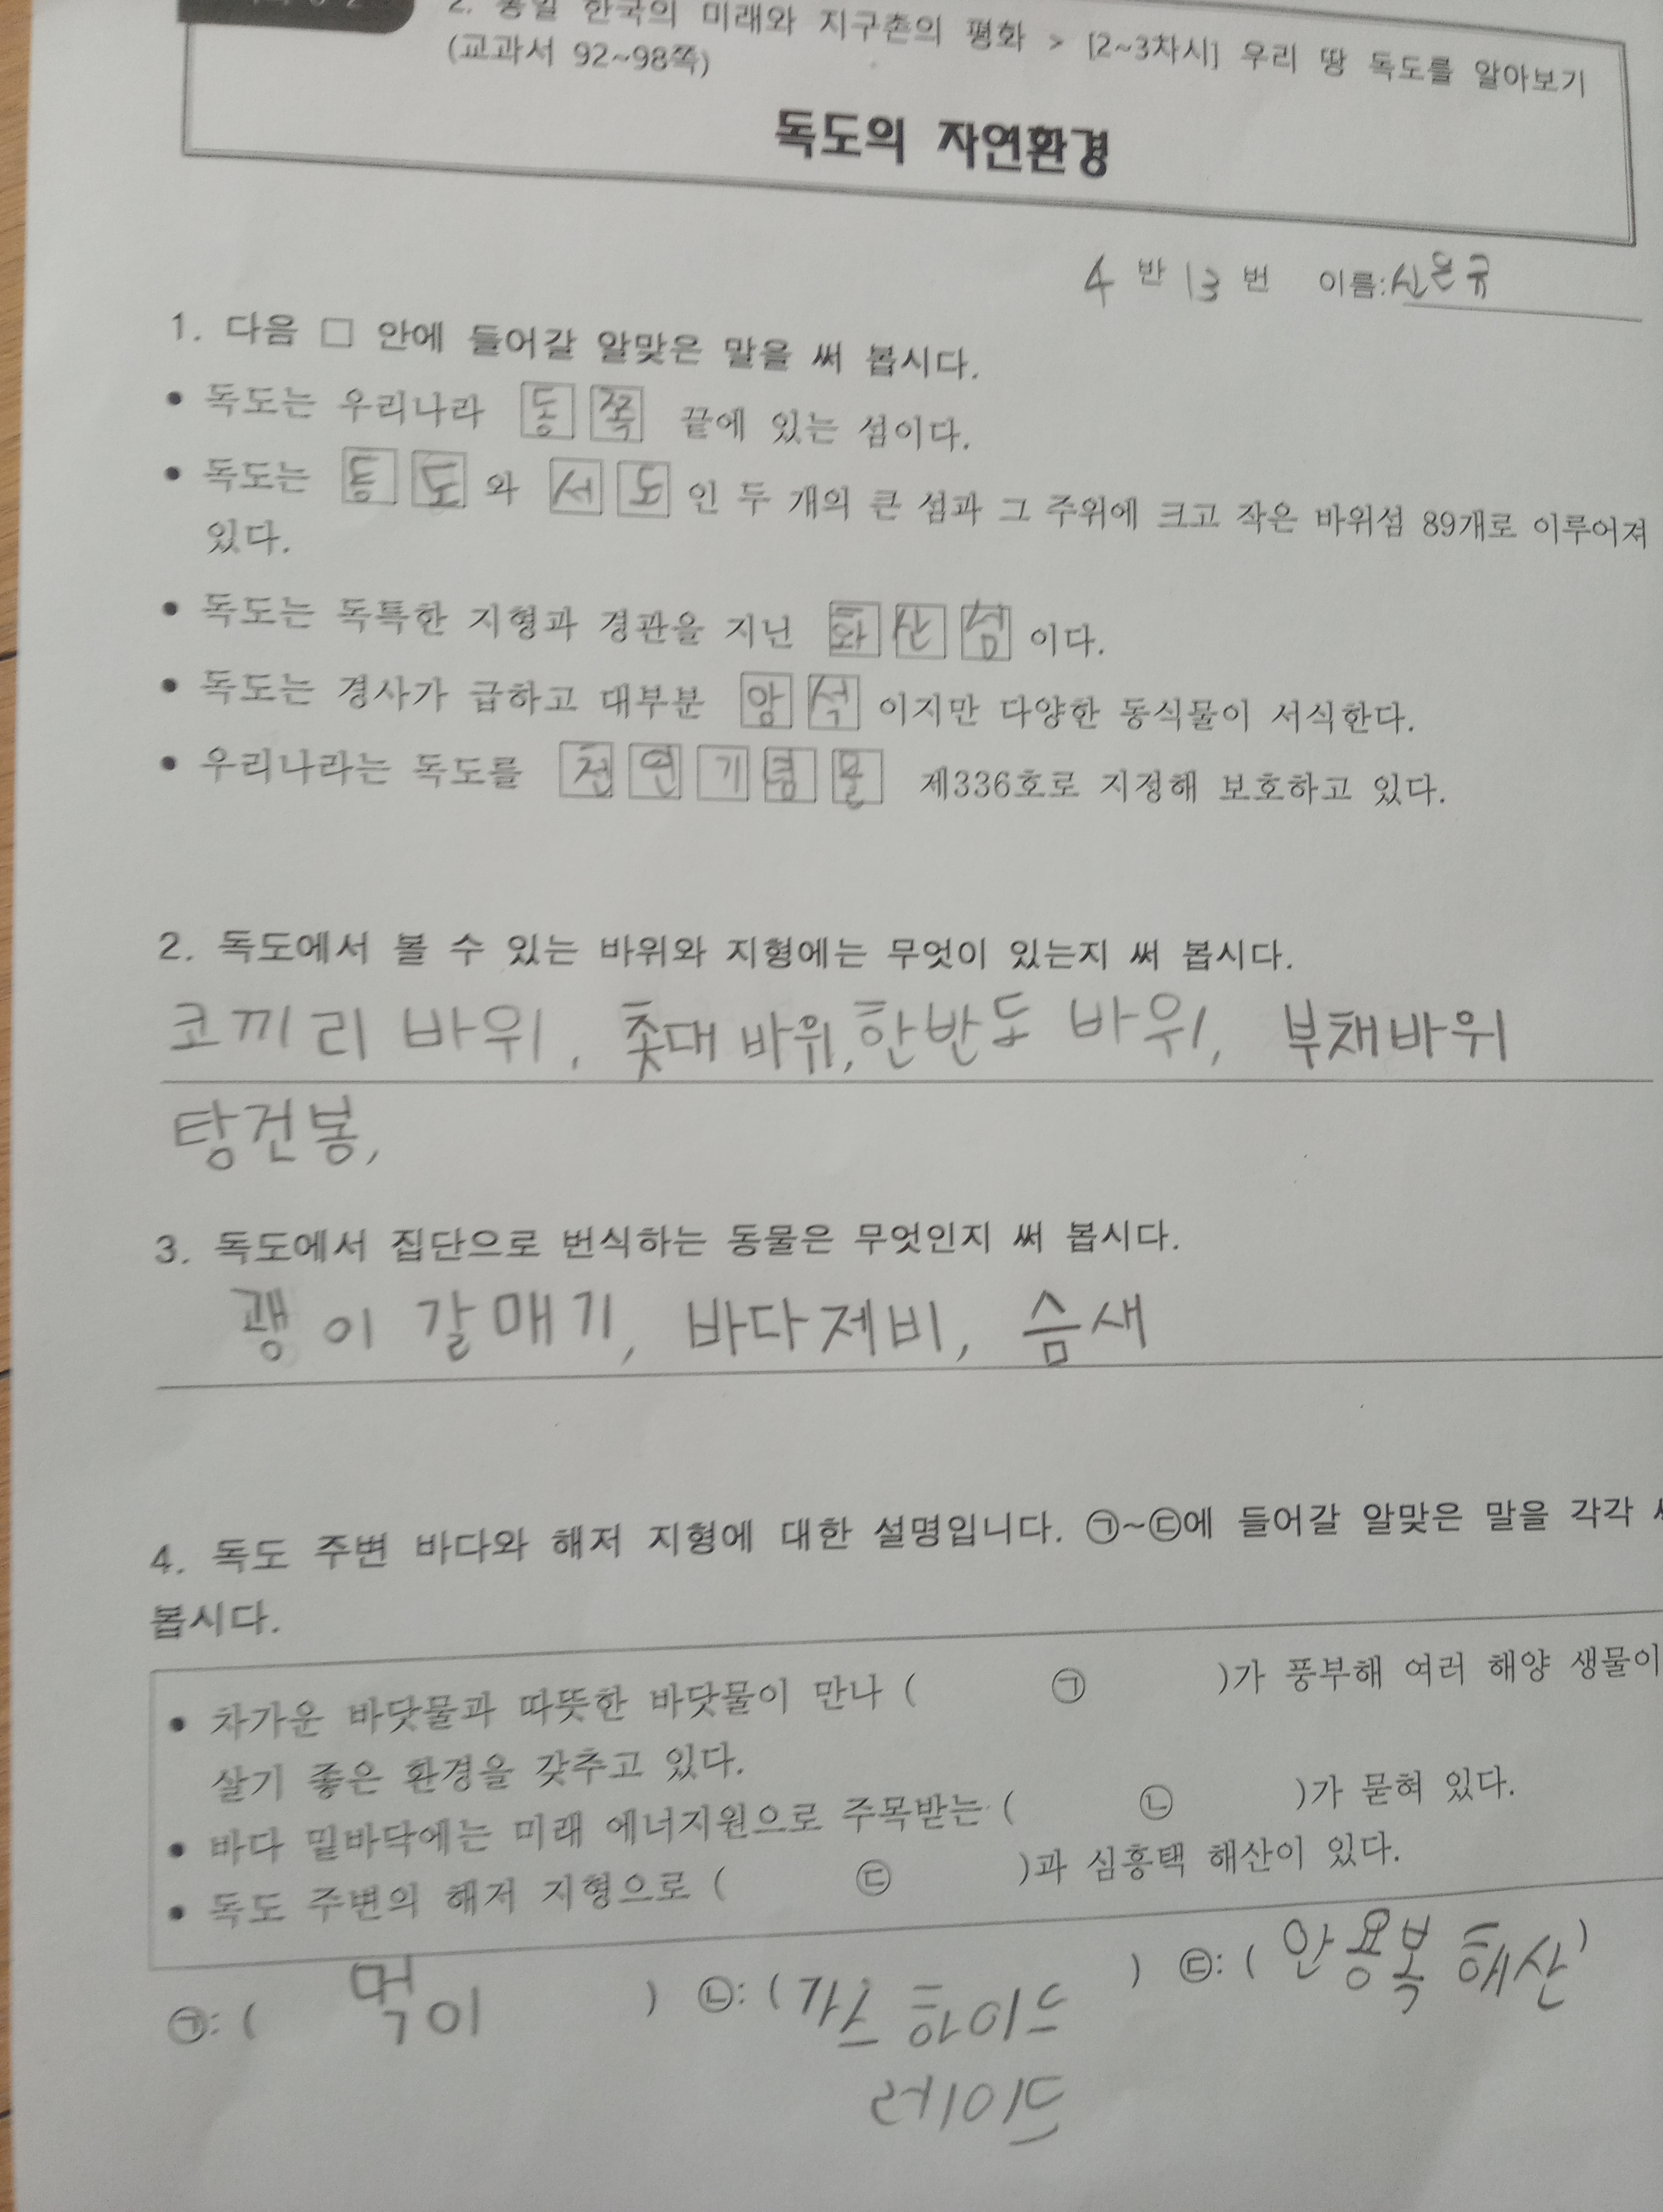 2. 통일 한국의 미래와 지구촌의 평화 > [2~3차시] 우리 땅 독도를 알아보기
(교과서 92~98쪽)
독도의 자연환경
4 반 13 번 이름:신은규
1. 다음 □ 안에 들어갈 알맞은 말을 써 봅시다.
• 독도는 우리나라 동쪽 끝에 있는 섬이다.
• 독도는 동도 와 서도 인 두 개의 큰 섬과 그 주위에 크고 작은 바위섬 89개로 이루어져
있다.
• 독도는 독특한 지형과 경관을 지닌 화산섬 이다.
• 독도는 경사가 급하고 대부분 암석 이지만 다양한 동식물이 서식한다.
• 우리나라는 독도를 천연기념물 제336호로 지정해 보호하고 있다.
2. 독도에서 볼 수 있는 바위와 지형에는 무엇이 있는지 써 봅시다.
코끼리 바위, 촟대 바위, 한반도 바위, 부채바위
탕건봉,
3. 독도에서 집단으로 번식하는 동물은 무엇인지 써 봅시다.
괭이 갈매기, 바다제비, 슴새
4. 독도 주변 바다와 해저 지형에 대한 설명입니다. ㉠~㉢에 들어갈 알맞은 말을 각각
봅시다.
• 차가운 바닷물과 따뜻한 바닷물이 만나 ( ㉠ )가 풍부해 여러 해양 생물이
살기 좋은 환경을 갖추고 있다.
• 바다 밑바닥에는 미래 에너지원으로 주목받는 ( ㉡ )가 묻혀 있다.
• 독도 주변의 해저 지형으로 ( ㉢ )과 심흥택 해산이 있다.
㉠: ( 먹이 ) ㉡: ( 가스 하이드 ) ㉢: ( 안용복 해산 )
레이드